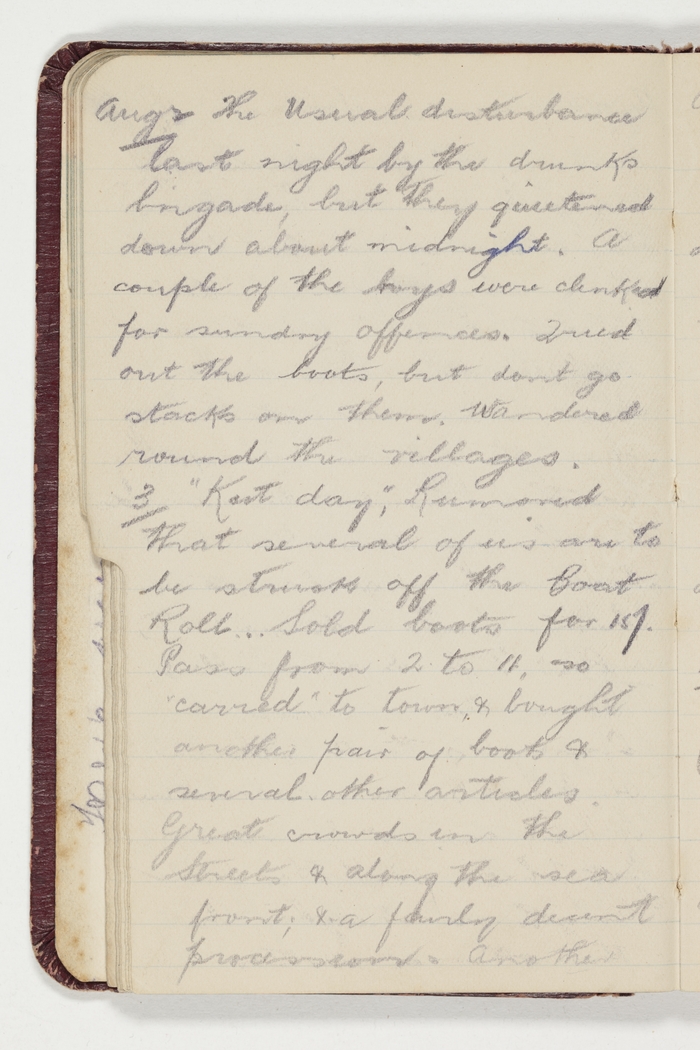 Aug 2 The Usual disturbance
last night by the drunks
brigade, but they quietened
down about midnight. A
couple of the boys were clinked
for sundry offences. Tried
out the boots, but dont go
stacks on them. Wandered
round the villages.
3 "Kit day", Rumored
that several of us are to
be struck off the Boat
Roll... Sold boots for 15/.
Pass from 2 to 11, so
"carred" to town, & bought
another pair of boots &
several other articles.
Great crowds in the
Streets & along the sea
front, & a fairly decent
procession. Another